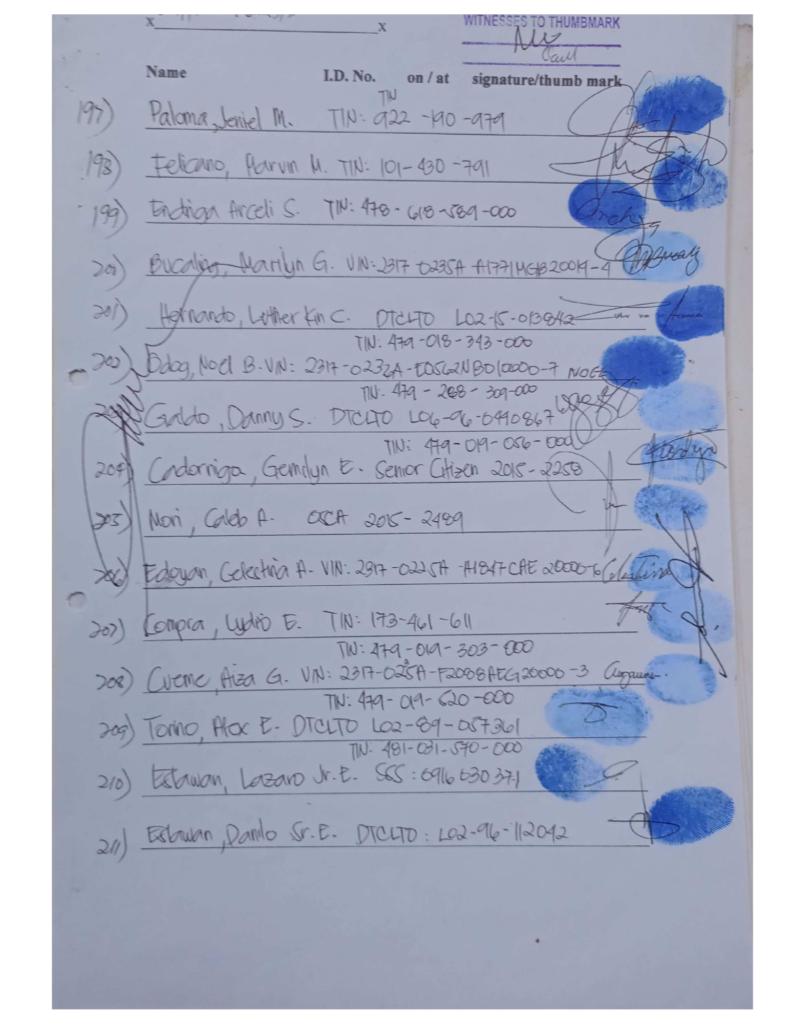 x x
WITNESSES TO THUMBMARK
Name I.D. No. on / at signature/thumb mark
TIN
197) Paloma, Jeniel M. TIN: 922-190-979
198) Felicano, Marvin M. TIN: 101-430-791
199) Endriga Arceli S. TIN: 478-618-589-000
200) Bucaling, Marilyn G. VIN: 2317-0235A-A1771MGB20019-4
201) Hernando, Luther Kin C. DTCLTO L02-15-013842
TIN: 479-018-343-000
202) Odog, Noel B. VIN: 2317-0232A-E0562NB010000-7 NOEL
TIN: 479-268-309-000
Galdo, Danny S. DTCLTO L06-96-0440867
TIN: 479-019-056-000
204) Cadorniga, Gemilyn E. Senior Citizen 2015-2258
205) Nori, Caleb A. OSCA 2015-2489
206) Edoyan, Celestina A. VIN: 2317-0225A-A1847CAE20000-6 Celestina
207) Compra, Lydio E. TIN: 173-461-611
TIN: 479-019-303-000
208) Cueme, Aiza G. VIN: 2317-025A-F2088AEG20000-3
TIN: 479-019-620-000
209) Torino, Alex E. DTCLTO L02-89-057361
TIN: 481-031-570-000
210) Estawan, Lazaro Jr. E. SSS: 0916530371
211) Estawan, Danilo Sr. E. DTCLTO: L02-96-112042